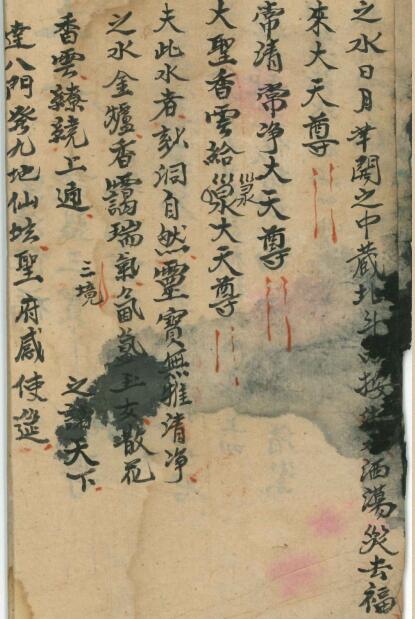 之水日月華開之中藏北斗品按生之洒蕩災去福
來大天尊
常清常净大天尊
大聖香雲給㵘大天尊
夫此水者刾洞自然靈寶無雅清净
之水金爐香靄瑞氣氤氳玉女散花
香雲繚繞上通三境之諸天下
達八門癸九地仙坛聖府感使筵